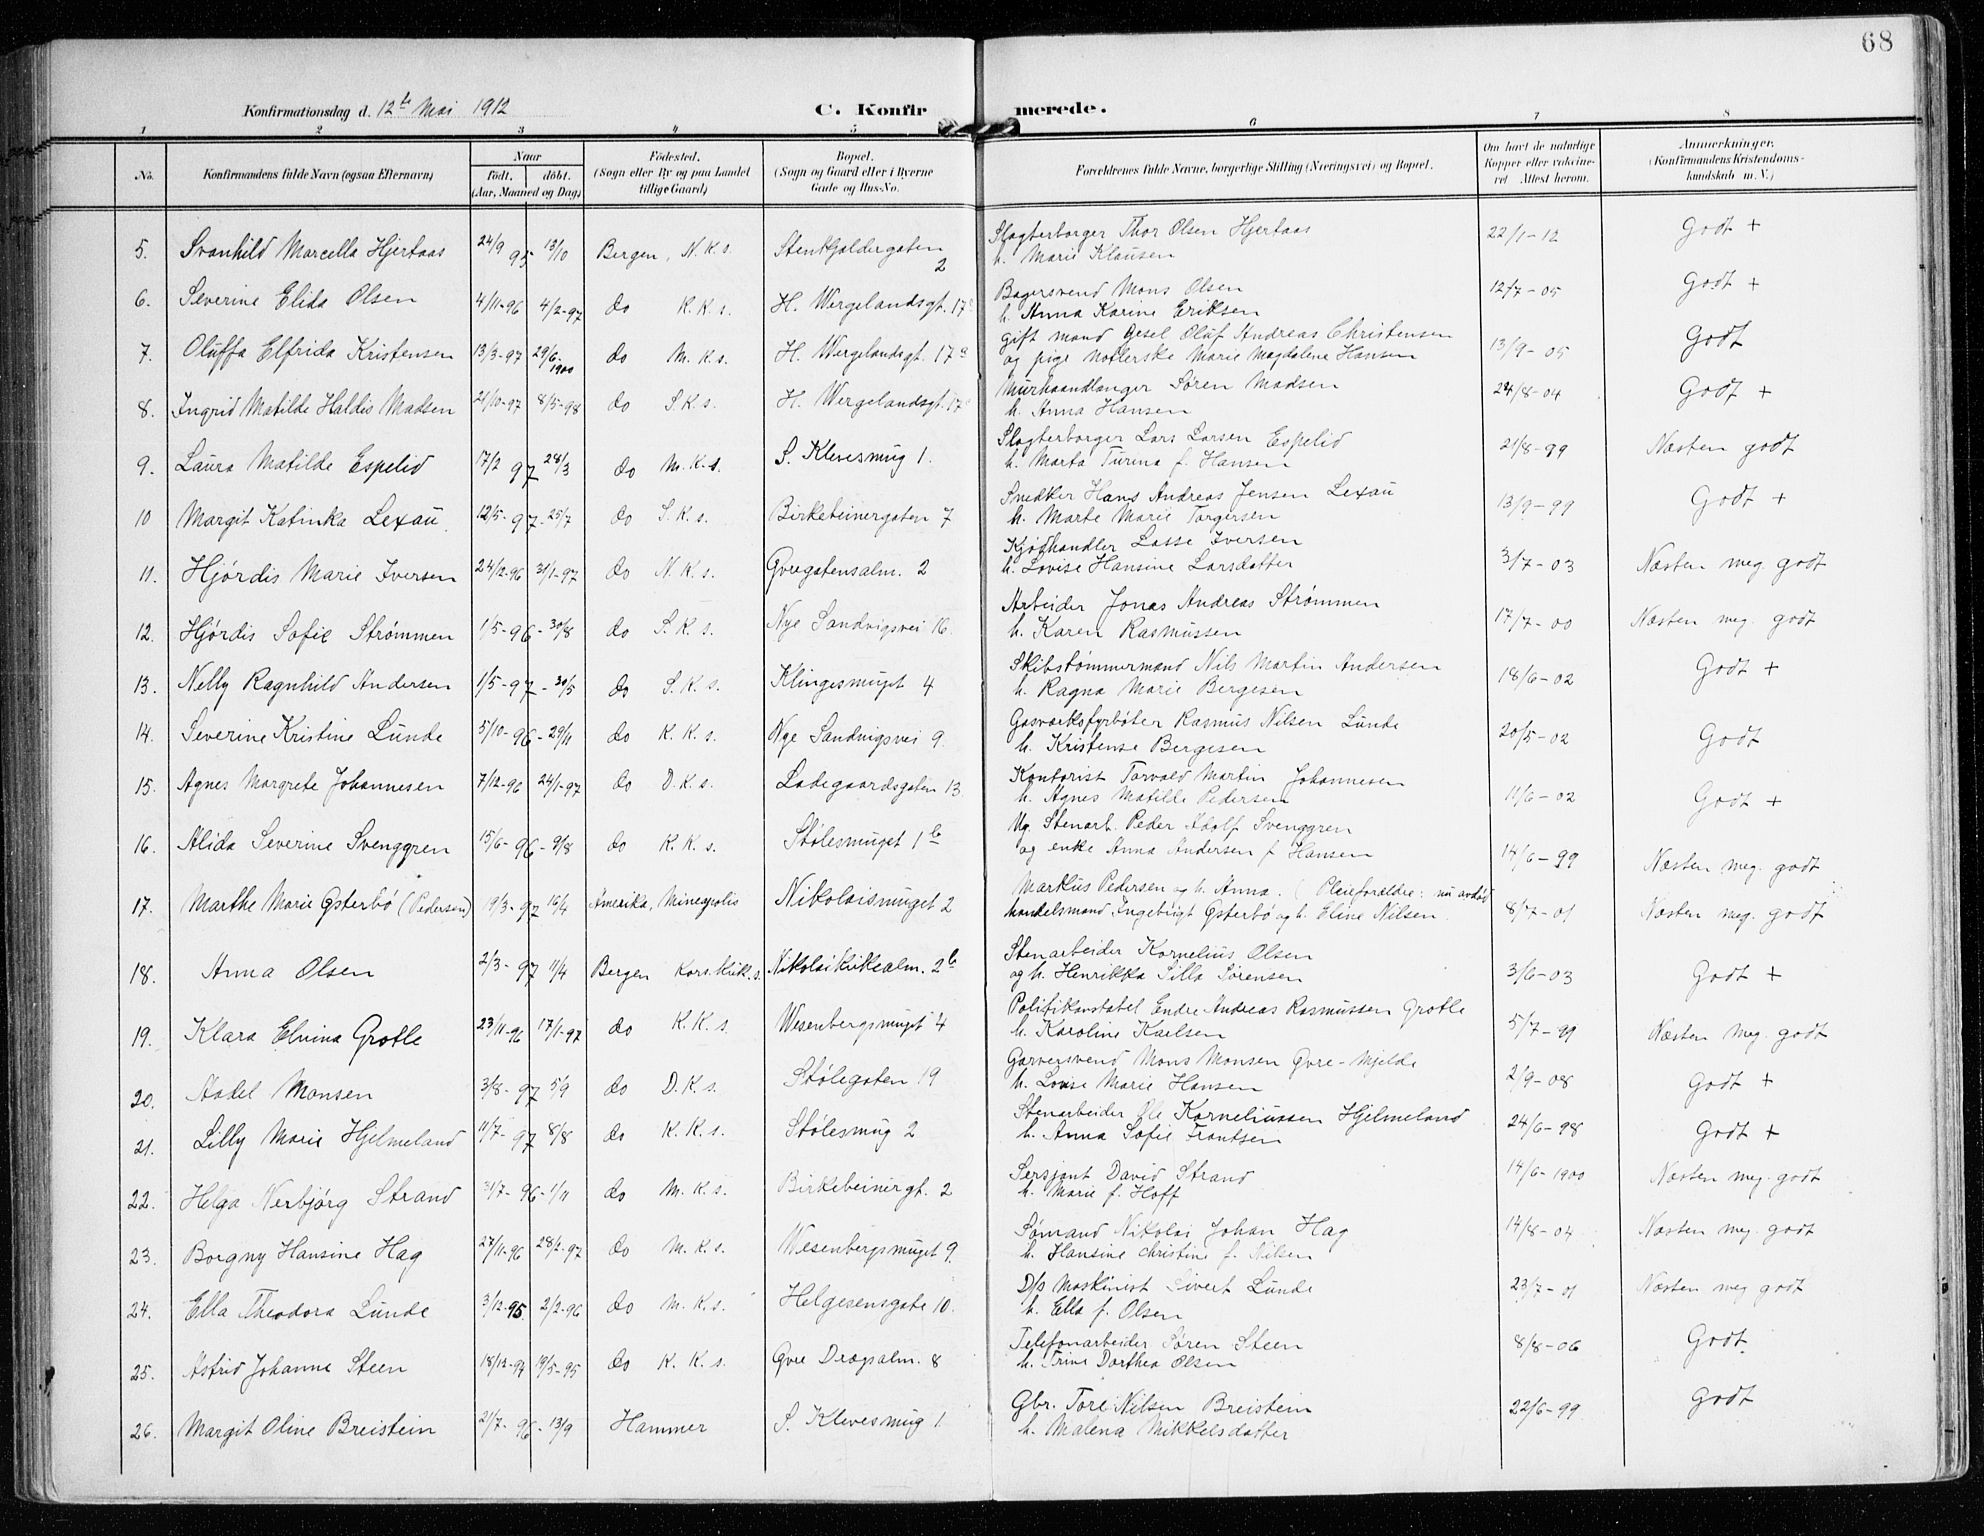 68
Konfirmationsdag d. 12te Mai 1912
C. Konfirmerede.
1 2 3 4 5 6 7 8
No. Konfirmandens fulde Navn (ogsaa Efternavn) Naar født. døbt. (Aar, Maaned og Dag) Fødested. (Sogn eller By og paa Landet tillige Gaard) Bopæl. (Sogn og Gaard eller i Byerne Gade og Hus-No. Forældrenes fulde Navne, borgerlige Stilling (Næringsvei) og Bopæl. Om havt de naturlige Kopper eller vaccineret. Attest herom. Anmerkninger. (Konfirmandens Kristendomskundskab m. V.)
5. Svanhild Marcella Hjertaas 24/9 95 13/10 Bergen, N. K. s. Stentjoldergaten 2 Slagterborger Thor Olsen Hjertaas 22/1-12 Godt +
h. Marie Klausen
6. Severine Elida Olsen 4/11-96 4/2-97 do K. K. s. H. Wergelandsgt. 17 Bagersvend Mons Olsen 12/7-05 Godt +
h. Anna Karine Eriksen
7. Oluffa Elfrida Kristensen 13/3-97 29/6-1900 do M. K. s. H. Wergelandsgt. 17a gift mand Gesel Oluf Andreas Christensen 13/9-05 Godt
og pige Marie Magdalene Hansen
8. Ingrid Matilde Haldis Madsen 21/10-97 8/5-98 do S. K. s. H. Wergelandsgt. 17 Murhaandlanger Søren Madsen 24/8-04 Godt +
h. Anna Hansen
9. Laura Matilde Espelid 17/2 97 28/3 do M. K. s. S. Klevesmug 1. Slagterborger Lars Larsen Espelid 21/8-99 Næsten godt
h. Marta Turina f. Hansen
10 Margit Katinka Lexau 12/5-97-25/7 do S. K. s. Birkebeinergaten 7 Snedker Hans Andreas Jensen Lexau 13/9-99 Godt +
h. Marte Marie Torgersen
11. Hjørdis Marie Iversen 24/12-96 31/1-97 do N. K. s. Øvregatensalm. 2 Kjødhandler Lasse Iversen 3/7-03 Næsten meg. godt
h. Lovise Hansine Larsdatter
12. Hjørdis Sofie Strømmen 1/5-96-30/8 do S. K. s. Nye Sandvigsvei 16. Arbeider Jonas Andreas Strømmen 17/7-00 Næsten meg. godt
h. Karen Rasmussen
13. Nelly Ragnhild Andersen 1/5-97-30/5 do S. K. s. Klingesmuget 4 Skibstømmermand Nils Martin Andersen 18/6-02 Godt +
h. Ragna Marie Bergesen
14. Severine Kristine Lunde 5/10-96-29/11 do K. K. s. Nye Sandvigsvei 9. Gasværksfyrbøter Rasmus Nilsen Lunde 20/5-02 Godt
h. Kristense Bergesen
15. Agnes Margrete Johannesen 7/12-96 24/1-97 do D. K. s. Ladegaardsgaten 13. Kontorist Torvald Martin Johannesen 11/6-02 Godt +
h. Agnes Matilde Pedersen
16. Alida Severine Svenggren 15/6-96-9/8 do K. K. s. Stølesmuget 1b Ug. Stenarb. Peder Adolf Svenggren 14/6-99 Næsten meg. godt
og enke Anna Andersen f. Hansen
17. Marthe Marie Østerbø (Pedersen) 19/3-97 16/4 Amerika, Mineapolis Nikolaismuget 2 Markus Pedersen og h. Anna. (Pleieforældre: nu avdød 8/7-01 Næsten meg. godt
handelsmand Ingebrigt Østerbø og h. Eline Nilsen.
18. Anna Olsen 2/3-97 11/4 Bergen Kors.kirk. s. Nikolaikirkealm. 2b Stenarbeider Kornelius Olsen 3/6-03 Godt +
og h. Henrikka Silla Sørensen
19. Klara Elvina Grotle 23/11-96 17/1-97 do K. K. s. Wesenbergsmuget 4 Politikonstabel Endre Andreas Rasmussen Grotle 5/7-99 Næsten meg. godt
h. Karoline Kaelsen
20. Aadel Monsen 3/8-97 5/9 do D. K. s. Stølegaten 19 Garversvend Mons Monsen Øvre-Mjelde 2/9-08 Godt +
h. Lovise Marie Hansen
21. Lilly Marie Hjelmeland 11/7-97 8/8 do K. K. s. Stølesmug 2 Stenarbeider Ole Korneliussen Hjelmeland 24/6-98 Godt +
h. Anna Sofie Frantsen
22. Helga Nerbjørg Strand 31/7-96-1/11 do M. K. s. Birkebeinergt. 2 Sersjant David Strand 14/6-1900 Næsten meg. godt
h. Marie f. Hoff
23. Borgny Hansine Hag 27/11-96 28/2-97 do M. K. s. Wesenbergsmuget 9. Sømand Nikolai Johan Hag 14/8-04 Næsten meg. godt
h. Hansine Christine f. Nilsen
24. Ella Theodora Lunde 3/12-95. 2/2-96 do M. K. s. Helgesensgate 10. D/s Maskinist Sivert Lunde 23/7-01 Næsten meg godt
h. Ella f. Olsen
25. Astrid Johanne Steen 18/12-94 19/5-95 do K. K. s. Øvre Dragsalm. 8 Telefonarbeider Søren Steen 8/8-06 Godt.
h. Trine Dorthea Olsen
26. Margit Oline Breistein 21/7-96-13/9 Hammer S. Klevesmug 1. Gbr. Tore Nilsen Breistein 22/6-99 Godt
h. Malena Mikkelsdatter